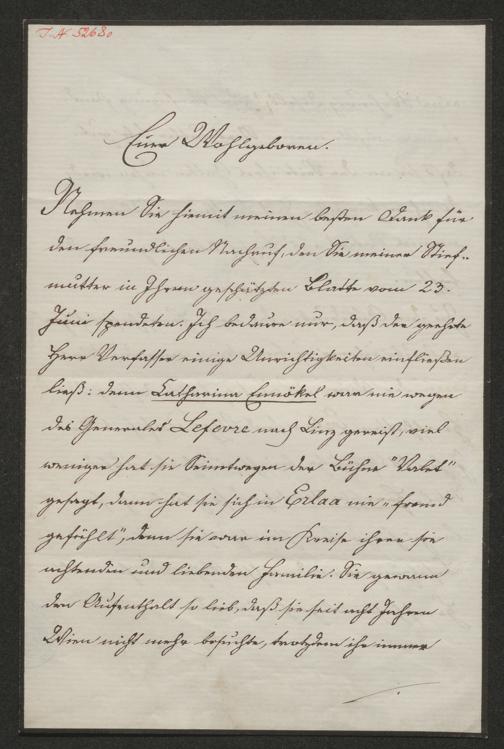 I. N. 52680
Euer Wohlgeboren.
Nehmen Sie hiemit meinen besten Dank für
den freundlichen Nachruf, den Sie meiner Stief-
mutter in Ihrem geschätzten Blatte vom 23.
Juni spendeten. Ich bedaure nur, daß der geehrte
Herr Verfasser einige Unrichtigkeiten einfließen
ließ: denn Catharina Ennökel war nie wegen
des Generales Lefevre nach Linz gereist, viel
weniger hat sie Seinetwegen der Bühne "Valet"
gesagt, dann hat sie sich in Erlaa nie „fremd
gefühlt", denn sie war im Kreise ihrer sie
achtenden und liebenden Familie. Sie gewann
den Aufenthalt so lieb, daß sie seit acht Jahren
Wien nicht mehr besuchte, trotzdem ihr immer